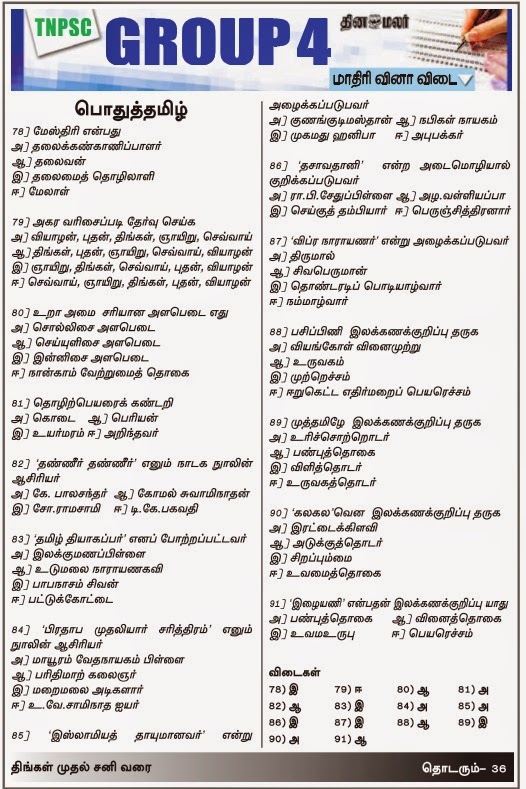 TNPSC
GROUP 4
தினமலர்
மாதிரி வினா விடை
பொதுத்தமிழ்
78] மேஸ்திரி என்பது
அ] தலைக்கண்காணிப்பாளர்
ஆ] தலைவன்
இ] தலைமைத் தொழிலாளி
ஈ] மேலாள்
79] அகர வரிசைப்படி தேர்வு செய்க
அ] வியாழன், புதன், திங்கள், ஞாயிறு, செவ்வாய்
ஆ] திங்கள், புதன், ஞாயிறு, செவ்வாய், வியாழன்
இ] ஞாயிறு, திங்கள், செவ்வாய், புதன், வியாழன்
ஈ] செவ்வாய், ஞாயிறு, திங்கள், புதன், வியாழன்
80] உறா அமை சரியான அளபெடை எது
அ] சொல்லிசை அளபெடை
ஆ] செய்யுளிசை அளபெடை
இ] இன்னிசை அளபெடை
ஈ] நான்காம் வேற்றுமைத் தொகை
81] தொழிற்பெயரைக் கண்டறி
அ] கொடை ஆ] பெரியன்
இ] உயர்மரம் ஈ] அறிந்தவர்
82] ‘தண்ணீர் தண்ணீர்’ எனும் நாடக நூலின்
ஆசிரியர்
அ] கே. பாலசந்தர் ஆ] கோமல் சுவாமிநாதன்
இ] சோ.ராமசாமி ஈ] டி.கே.பகவதி
83] ‘தமிழ் தியாகப்பர்’ எனப் போற்றப்பட்டவர்
அ] இலக்குமணப்பிள்ளை
ஆ] உடுமலை நாராயணகவி
இ] பாபநாசம் சிவன்
ஈ] பட்டுக்கோட்டை
84] ‘பிரதாப முதலியார் சரித்திரம்’ எனும்
நூலின் ஆசிரியர்
அ] மாயூரம் வேதநாயகம் பிள்ளை
ஆ] பரிதிமாற் கலைஞர்
இ] மறைமலை அடிகளார்
ஈ] உ.வே.சாமிநாத ஐயர்
85] ‘இஸ்லாமியத் தாயுமானவர்’ என்று
அழைக்கப்படுபவர்
அ] குணங்குடிமஸ்தான் ஆ] நபிகள் நாயகம்
இ] முகமது ஹனிபா ஈ] அபுபக்கர்
86] ‘தசாவதானி’ என்ற அடைமொழியால்
குறிக்கப்படுபவர்
அ] ரா.பி.சேதுப்பிள்ளை ஆ] அழ.வள்ளியப்பா
இ] செய்குத் தம்பியார் ஈ] பெருஞ்சித்திரனார்
87] ‘விப்ர நாராயணர்’ என்று அழைக்கப்படுபவர்
அ] திருமால்
ஆ] சிவபெருமான்
இ] தொண்டரடிப் பொடியாழ்வார்
ஈ] நம்மாழ்வார்
88] பசிப்பிணி இலக்கணக்குறிப்பு தருக
அ] வியங்கோள் வினைமுற்று
ஆ] உருவகம்
இ] முற்றெச்சம்
ஈ] ஈறுகெட்ட எதிர்மறைப் பெயரெச்சம்
89] முத்தமிழே இலக்கணக்குறிப்பு தருக
அ] உரிச்சொற்றொடர்
ஆ] பண்புத்தொகை
இ] விளித்தொடர்
ஈ] உருவகத்தொடர்
90] ‘கலகல’வென இலக்கணக்குறிப்பு தருக
அ] இரட்டைக்கிளவி
ஆ] அடுக்குத்தொடர்
இ] சிறப்பும்மை
ஈ] உவமைத்தொகை
91] ‘இழையணி’ என்பதன் இலக்கணக்குறிப்பு யாது
அ] பண்புத்தொகை ஆ] வினைத்தொகை
இ] உவமஉருபு ஈ] பெயரெச்சம்
விடைகள்
78) இ 79) ஈ 80) ஆ 81) அ
82) ஆ 83) இ 84) அ 85) அ
86) இ 87) இ 88) ஆ 89) இ
90) அ 91) ஆ
திங்கள் முதல் சனி வரை
தொடரும்- 36